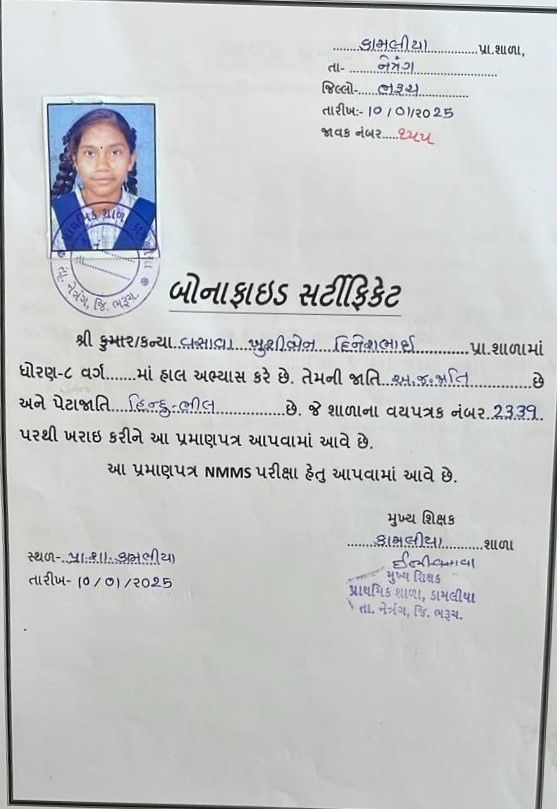 કામલીયા પ્રા.શાળા,
તા- નેત્રંગ
જિલ્લો- ભરૂચ
તારીખ:- 10/01/2025
જાવક નંબર ૧૫૫
તા. નેત્રંગ, જિ. ભરૂચ.
બોનાફાઇડ સર્ટીફિકેટ
શ્રી કુમાર/કન્યા વસાવા ખુશીબેન દિનેશભાઈ પ્રા.શાળામાં
ધોરણ-૮ વર્ગ......માં હાલ અભ્યાસ કરે છે. તેમની જાતિ અ.જ.જાતિ છે
અને પેટાજાતિ હિન્દુ-ભીલ છે. જે શાળાના વયપત્રક નંબર 2339
પરથી ખરાઇ કરીને આ પ્રમાણપત્ર આપવામાં આવે છે.
આ પ્રમાણપત્ર NMMS પરીક્ષા હેતુ આપવામાં આવે છે.
મુખ્ય શિક્ષક
કામલીયા શાળા
સ્થળ- પ્રા.શા. કામલીયા
તારીખ- 10/01/2025
મુખ્ય શિક્ષક
પ્રાથમિક શાળા, કામલીયા
તા. નેત્રંગ, જિ. ભરૂચ.